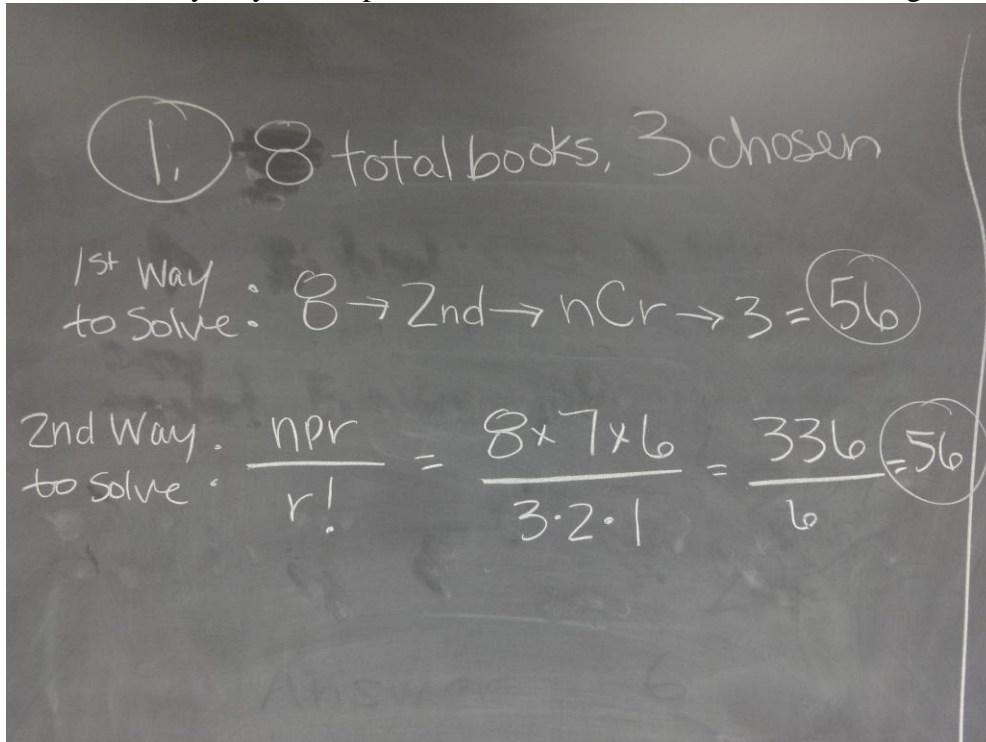 1. 8 total books, 3 chosen
1st Way to Solve: 8 → 2nd → nCr → 3 = 56
2nd Way to Solve: nPr / r! = 8 x 7 x 6 / 3 · 2 · 1 = 336 / 6 = 56
Answer 6